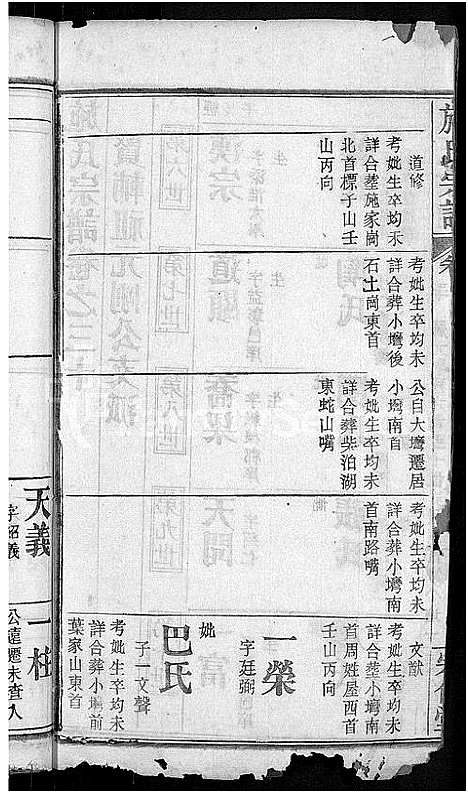 施氏宗譜
道修
考妣生卒均未
詳合塟施家崗
北首標子山壬
山丙向
考妣生卒均未
詳合葬小塆後
石土崗東首
公自大塆遷居
小塆南自
考妣生卒均未
詳合葬柴泊湖
東蛇山嘴
考妣生卒均未
詳合葬小塆南
首南路嘴
文猷
考妣生卒均未
詳合葬小塆南
首周姓屋西首
壬山丙向
一榮
字廷弼
妣
巴氏
子一文聲
考妣生卒均未
詳合葬小塆前
葉家山東首
天義
字紹義
一柱
公遠遷未查入